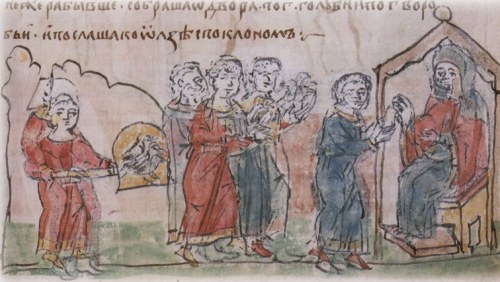 ниже ра бывше · собраша ѿ двора · по г · голоби и по г воро
бьи · и послаша к ѡлзѣ с поклономъ :